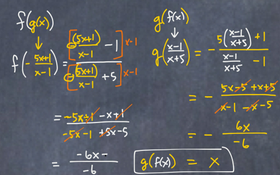 f(g(x))
↓
f(-(5x+1)/(x-1)) = [-(5x+1)/(x-1) - 1] x-1 / [-(5x+1)/(x-1) + 5] x-1
= (-5x-1 -x+1)/(-5x-1 +5x-5)
= -6x/-6
g(f(x))
↓
g((x-1)/(x+5)) = -(5((x-1)/(x+5)) + 1)/((x-1)/(x+5) - 1)
= -(5x-5+x+5)/(x-1-x-5)
= -6x/-6
g(f(x)) = x